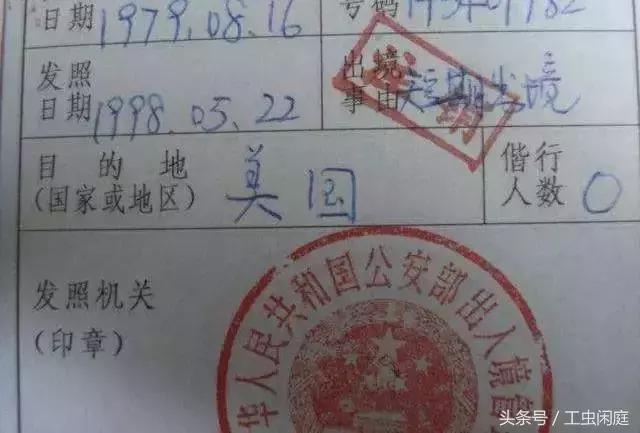 日期 1979.08.16
号码
发照日期 1998.05.22
出境事由 短期出境
目的地
(国家或地区) 美国
偕行人数 0
发照机关
(印章)
华人民共和国公安部出入境管
头条号 / 工虫闲庭